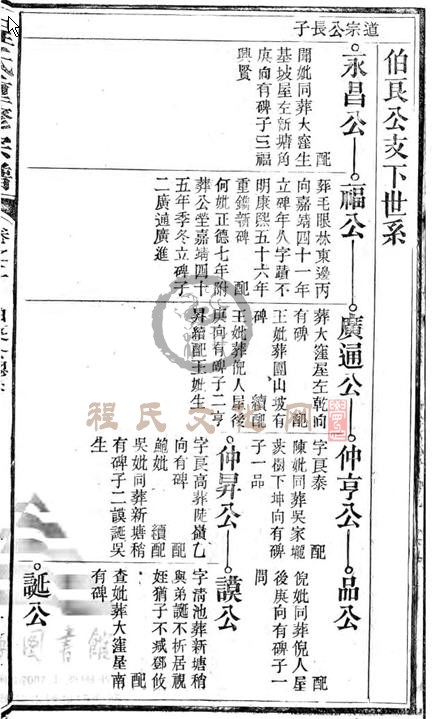 道宗公長子
伯良公支下世系
永昌公
配
聞妣同葬大窪生
基坡屋左新塘角
庚向有碑子三福
興賢
福公
葬毛眼林東邊丙
向嘉靖四十一年
立碑年久字蹟不
明康熙五十六年
重鐫新碑 配
何妣正德七年附
葬公塋嘉靖四十
五年季冬立碑子
二廣通廣進
廣通公
葬大窪屋左乾向
有碑 配
王妣葬圍山坡有
碑 續配
王妣葬倪人屋後
庚向有碑子二亨
昇續配王妣生
仲亨公
字良泰 配
陳妣同葬吳家壠
茨樹下坤向有碑
子一品
品公
配
倪妣同葬倪人屋
後庚向有碑子一
問
仲昇公
字良高葬陡嶺乙
向有碑 配
鮑妣 續配
吳妣同葬新塘稍
有碑子二謨誕吳
生
謨公
字清池葬新塘稍
與弟誕不析居視
姪猶子不減鄧攸
配
查妣葬大窪屋南
有碑
誕公
重修宗譜
程氏文化网
書館